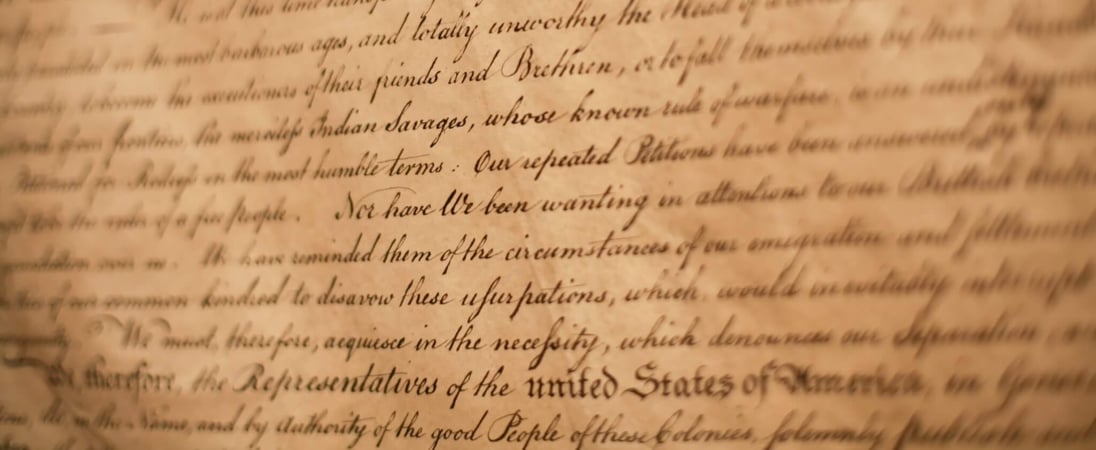 He is at this time transp
in the most barbarous ages, and totally unworthy the Head of a
the executioners of their friends and Brethren, or to fall themselves by their
of our frontiers, the merciless Indian Savages, whose known rule of warfare, is an
Petitioned for Redress in the most humble terms : Our repeated Petitions have been answered by
the ruler of a free people. Nor have We been wanting in attentions to our Brittish
over us. We have reminded them of the circumstances of our emigration and settlement
of our common kindred to disavow these usurpations, which would inevitably interrupt
We must, therefore, acquiesce in the necessity, which denounces our Separation,
We, therefore, the Representatives of the united States of America, in General
in the Name, and by Authority of the good People of these Colonies, solemnly publish and